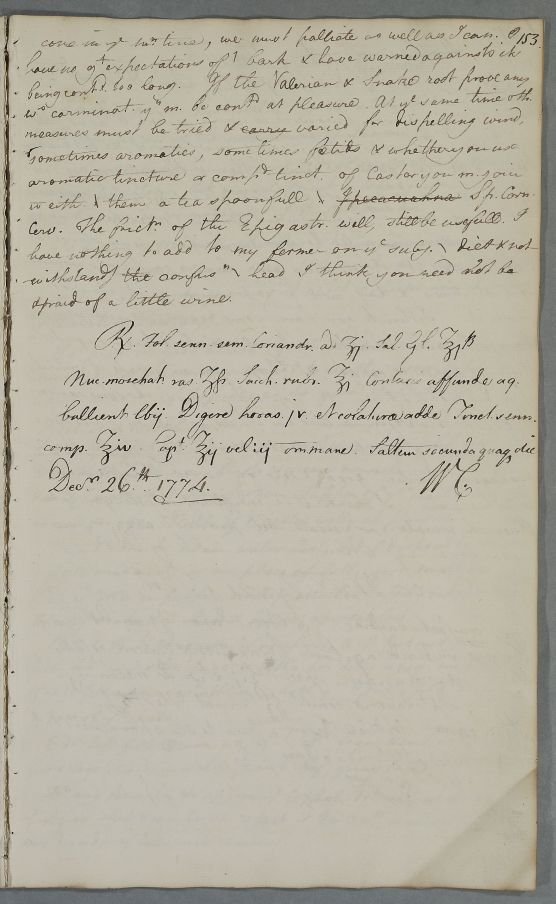 153.
come in yͤ mn time, we must palliate as well as I can. I
have no gt expectations of t bark & have warned against its
being contd. too long. If the Valerian & Snake root prove any
ws carminat. ym m. be contd at pleasure. At yͤ same time oth.
measures must be tried & carry varied for dispelling wind,
sometimes aromatics, sometimes fetids & whether you use
aromatic tincture or compd tinct. of Castor you m. join
with \ them a tea spoonfull \ Ipecacuahna Sp. Corn.
Cerv. The frictn of the Epigastr. will, still be usefull. I
have nothing to add to my former on yͤ subj. \ Diet & not
withstandg the confusn \ head I think you need not be
afraid of a little wine.
℞. Fol. senn. sem. Coriandr. a. ʒj. Sal Gl. ʒjß
Nuc. moschat. ras. ʒß. Sacch. rubr. ʒj Contusis affunde aq.
bullient. ℔ij. Digere horas. jv. et colaturæ adde Tinct. senn.
comp. ʒiv. Capt. ʒij vel iij omni mane. Saltem secunda quaq. die
Decr. 26.th 1774. WC.